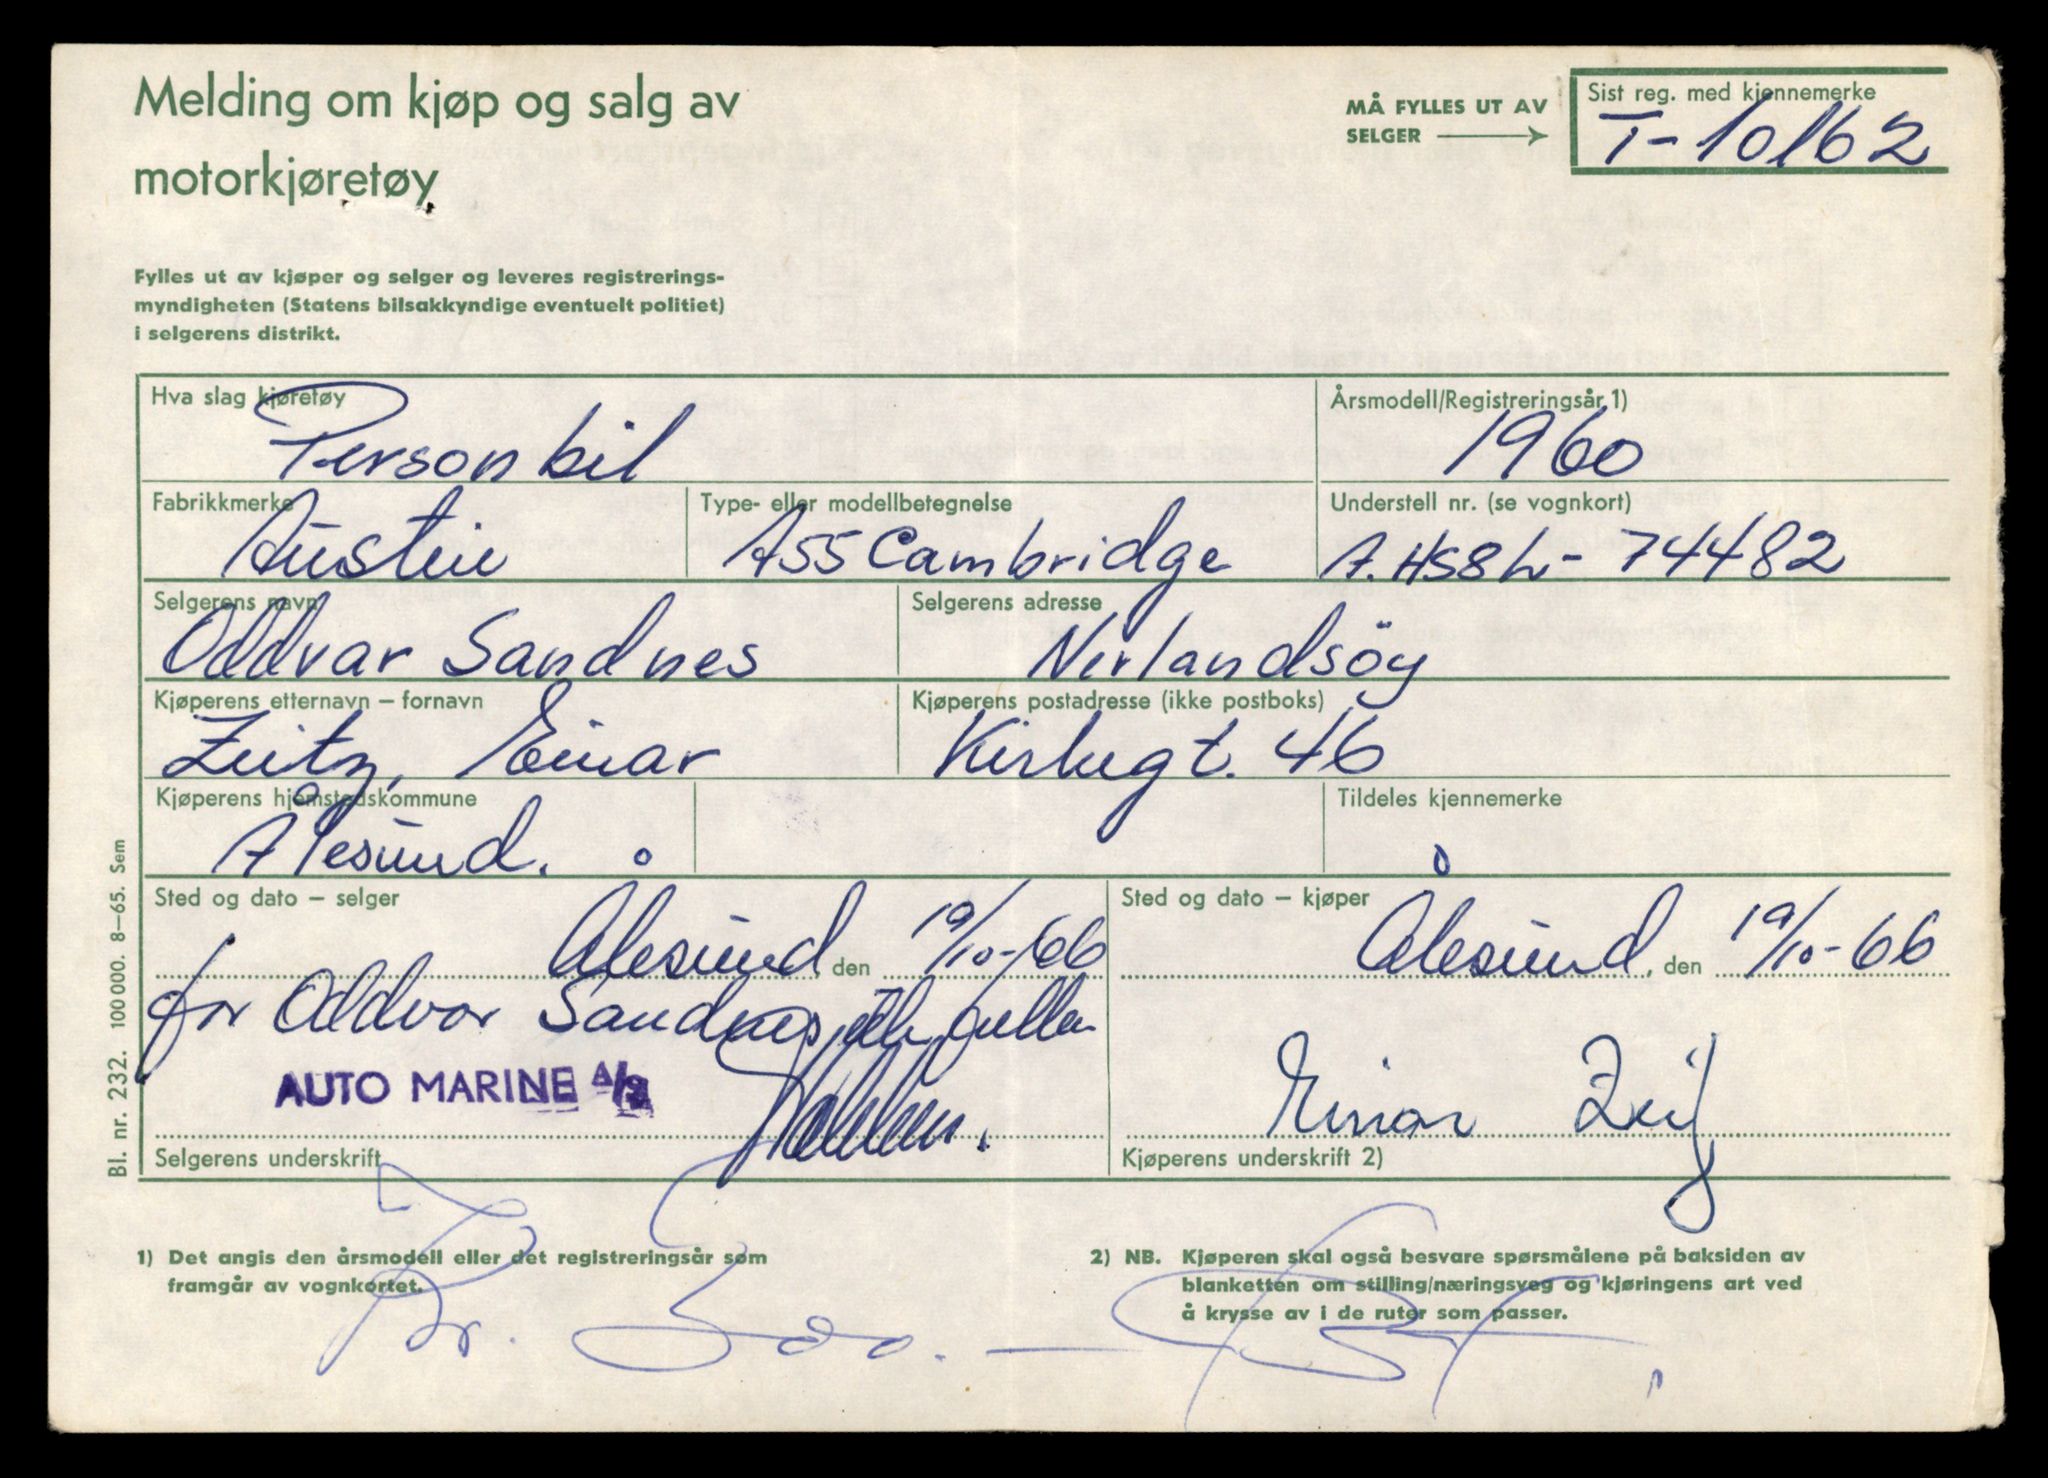 Melding om kjøp og salg av
motorkjøretøy
MÅ FYLLES UT AV
SELGER
Sist reg. med kjennemerke
T-10162
Fylles ut av kjøper og selger og leveres registrerings-
myndigheten (Statens bilsakkyndige eventuelt politiet)
i selgerens distrikt.
Hva slag kjøretøy
Personbil
Årsmodell/Registreringsår 1)
1960
Fabrikkmerke
Austin
Type- eller modellbetegnelse
A55 Cambridge
Understell nr. (se vognkort)
A.HS8L-74482
Selgerens navn
Oddvar Sandnes
Selgerens adresse
Nerlandsöy
Kjøperens etternavn – fornavn
Zeitz, Einar
Kjøperens postadresse (ikke postboks)
46
Kjøperens hjemstedskommune
Ålesund.
Tildeles kjennemerke
Sted og dato – selger
Ålesund den 19/10-66
for Oddvar Sandnes
AUTO MARINE A/S
Selgerens underskrift
Sted og dato – kjøper
Ålesund, den 19/10-66
Einar
Kjøperens underskrift 2)
Bl. nr. 232. 100 000. 8–65. Sem
1) Det angis den årsmodell eller det registreringsår som
framgår av vognkortet.
2) NB. Kjøperen skal også besvare spørsmålene på baksiden av
blanketten om stilling/næringsveg og kjøringens art ved
å krysse av i de ruter som passer.
Kr.